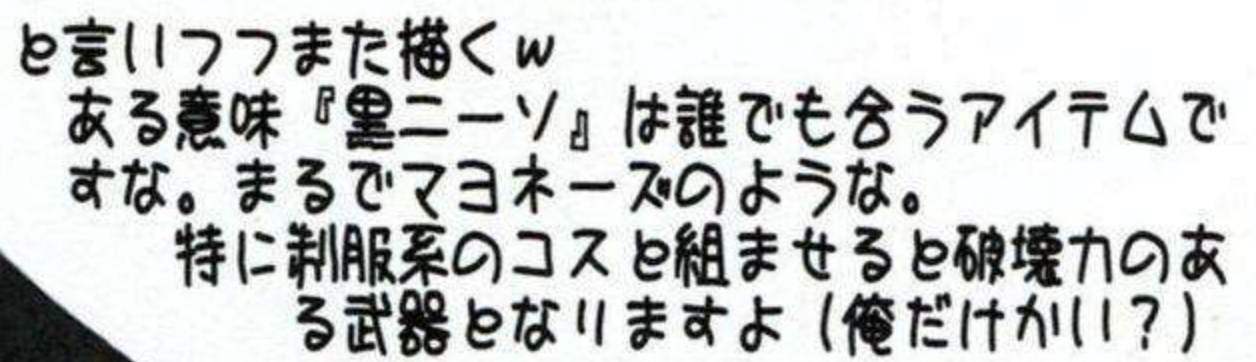 と言いつつまた描くw
ある意味『黒ニーソ』は誰でも合うアイテムで
すな。まるでマヨネーズのような。
特に制服系のコスと組ませると破壊力のあ
る武器となりますよ(俺だけかい?)